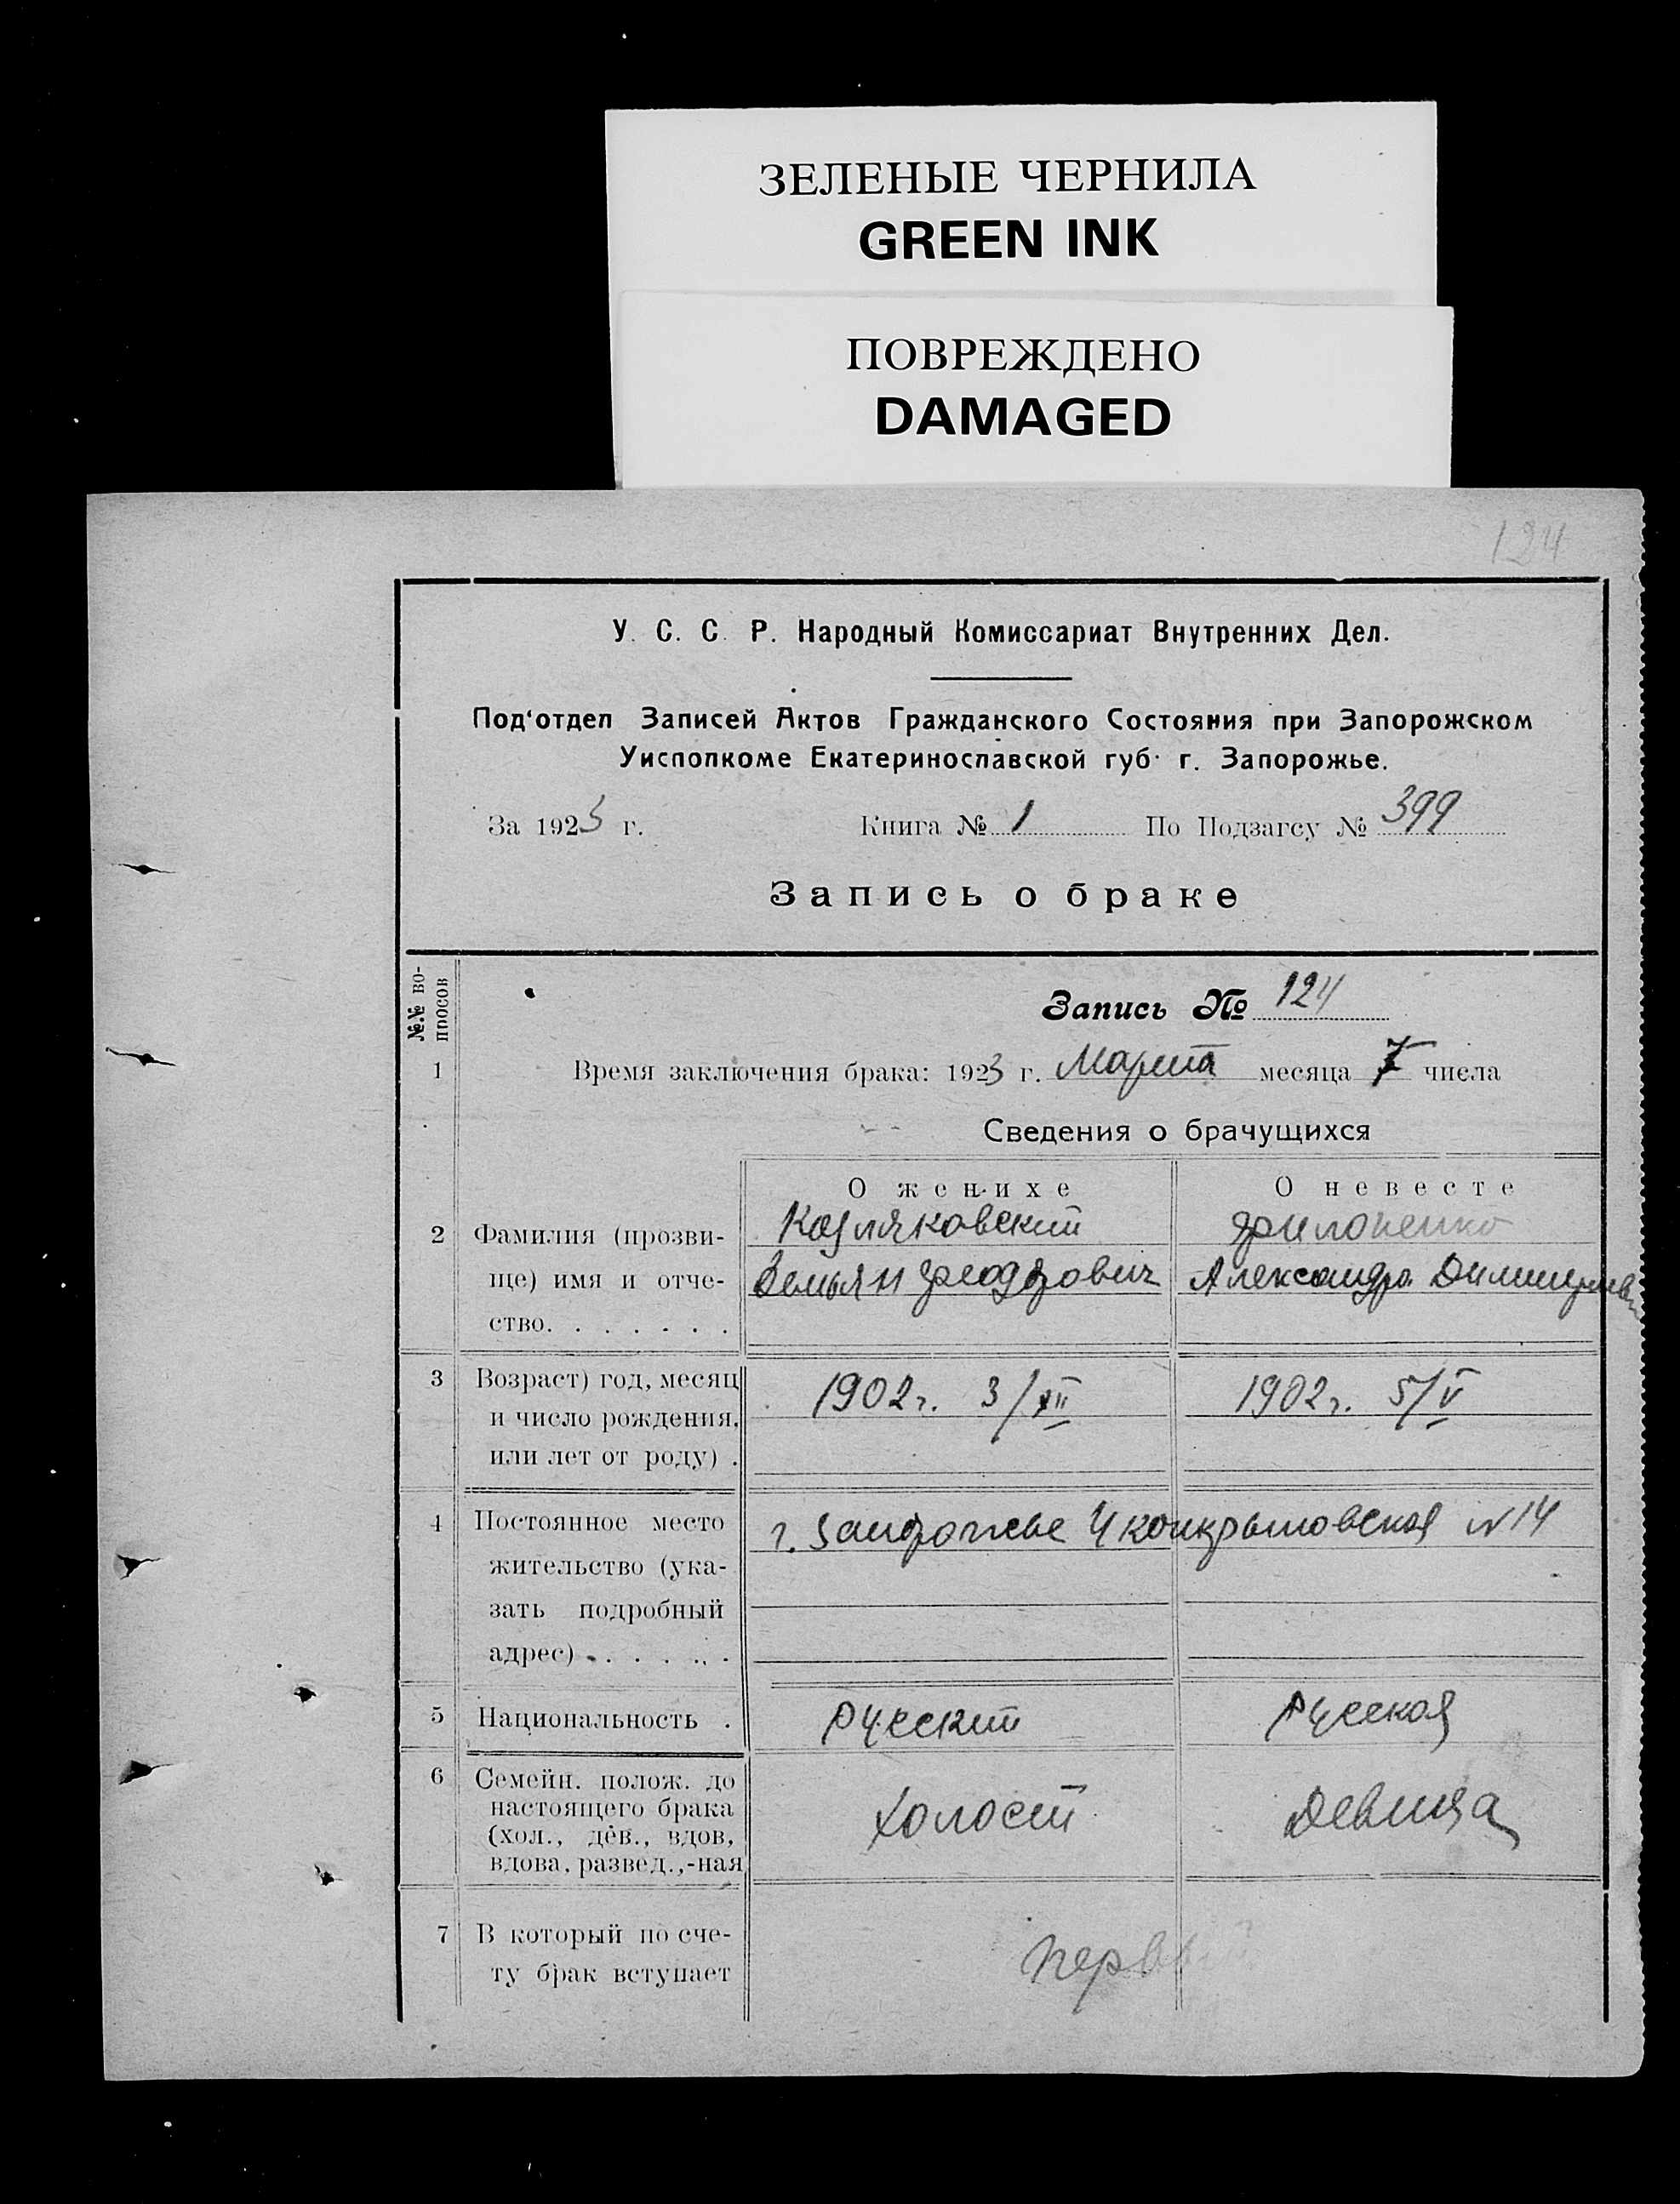 ЗЕЛЕНЫЕ ЧЕРНИЛА
GREEN INK
ПОВРЕЖДЕНО
DAMAGED
124
У. С. С. Р. Народный Комиссариат Внутренних Дел.
Под‘отдел Записей Актов Гражданского Состояния при Запорожском
Уисполкоме Екатеринославской губ. г. Запорожье.
За 1923 г. Книга № 1 По Подзагсу № 399
Запись о браке
№.№ во-
просов
Запись № 124
1 Время заключения брака: 1923 г. Марта месяца 7 числа
Сведения о брачущихся
О женихе О невесте
2 Фамилия (прозви- Козляковский Филоненко
ще) имя и отче- Демьян Феодорович Александра
ство. . . . . . .
3 Возраст) год, месяц 1902 г. 3/XII 1902 г. 5/V
и число рождения,
или лет от роду) .
4 Постоянное место г. Запорожье №14
жительство (ука-
зать подробный
адрес) . . . . . .
5 Национальность . Русский Русская
6 Семейн. полож. до
настоящего брака Холост Девица
(хол., дев., вдов,
вдова, развед.,-ная
7 В который по сче- первый
ту брак вступает